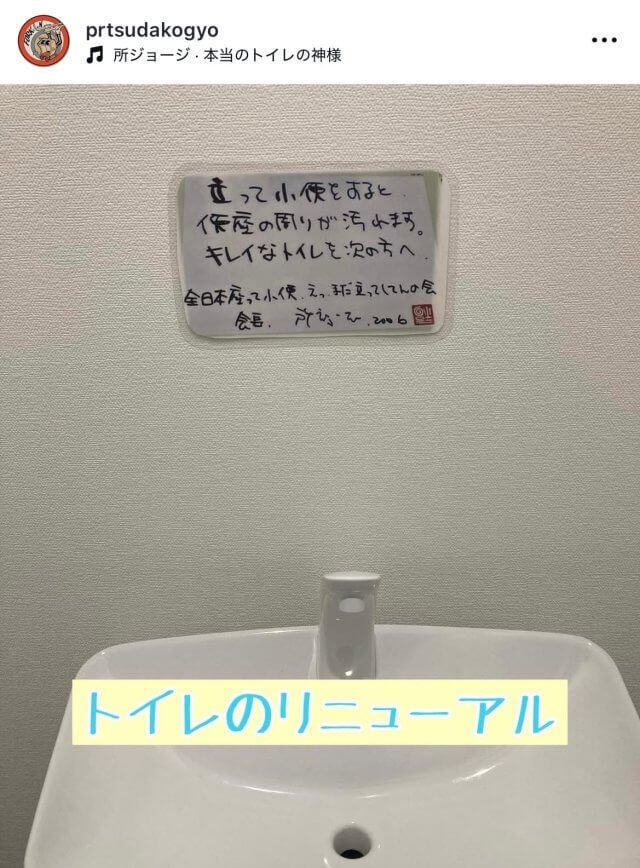 prtsudakogyo
所ジョージ · 本当のトイレの神様
立って小便をすると、
便座の周りが汚れます。
キレイなトイレを次の方へ、
全日本座って小便、えっ、まだ立ってしてんの会
会長、所ジョージ、2006
トイレのリニューアル